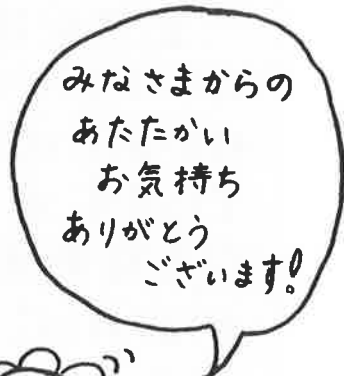 みなさまからの
あたたかい
お気持ち
ありがとう
ございます!